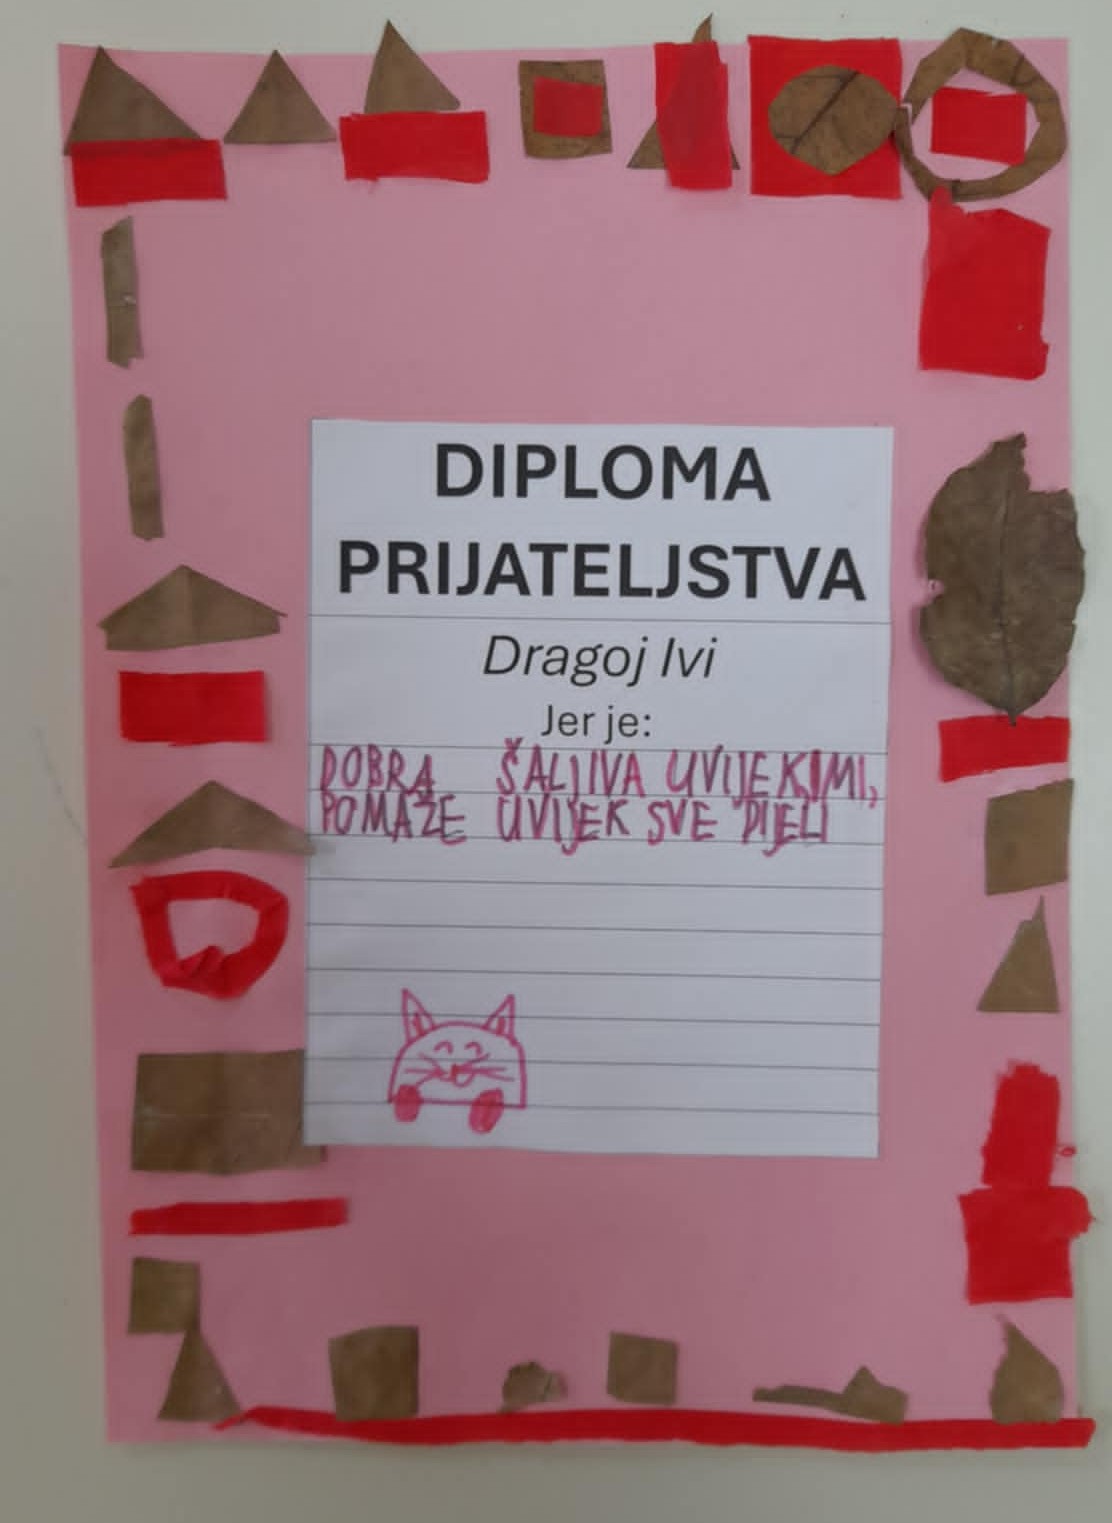 DIPLOMA
PRIJATELJSTVA
Dragoj Ivi
Jer je:
DOBRA ŠALJIVA UVIJEK MI,
POMAŽE UVIJEK SVE DIJELI